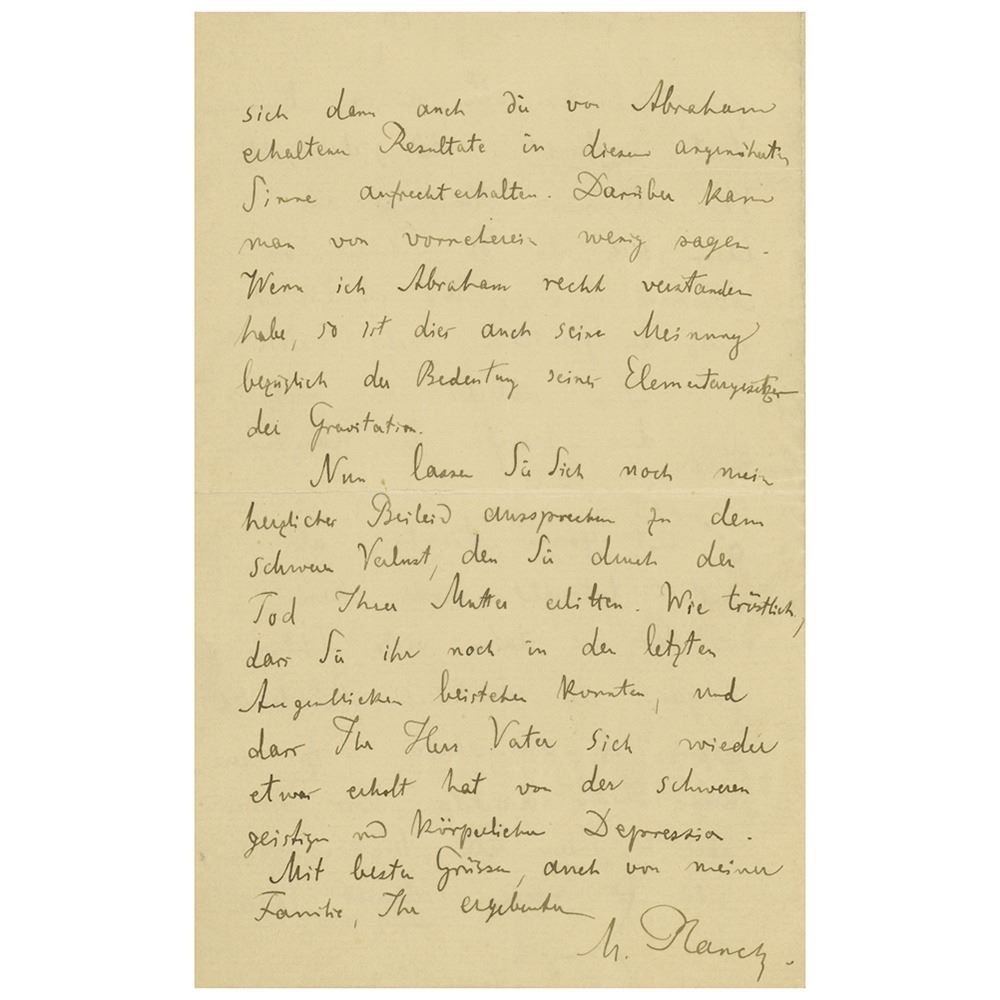 sich dann auch die von Abraham
erhaltenen Resultate in diesem angenäherten
Sinne aufrechterhalten. Darüber kann
man von vorneherein wenig sagen.
Wenn ich Abraham recht verstanden
habe, so ist dies auch seine Meinung
bezüglich der Bedeutung seines Elementargesetzes
der Gravitation.
Nun lassen Sie Sich noch mein
herzliches Beileid aussprechen zu dem
schweren Verlust, den Sie durch den
Tod Ihrer Mutter erlitten. Wie tröstlich,
dass Sie ihr noch in den letzten
Augenblicken beistehen konnten, und
dass Ihr Herr Vater sich wieder
etwas erholt hat von der schweren
geistigen und körperlichen Depression.
Mit besten Grüssen, auch von meiner
Familie, Ihr ergebenster
M. Planck.